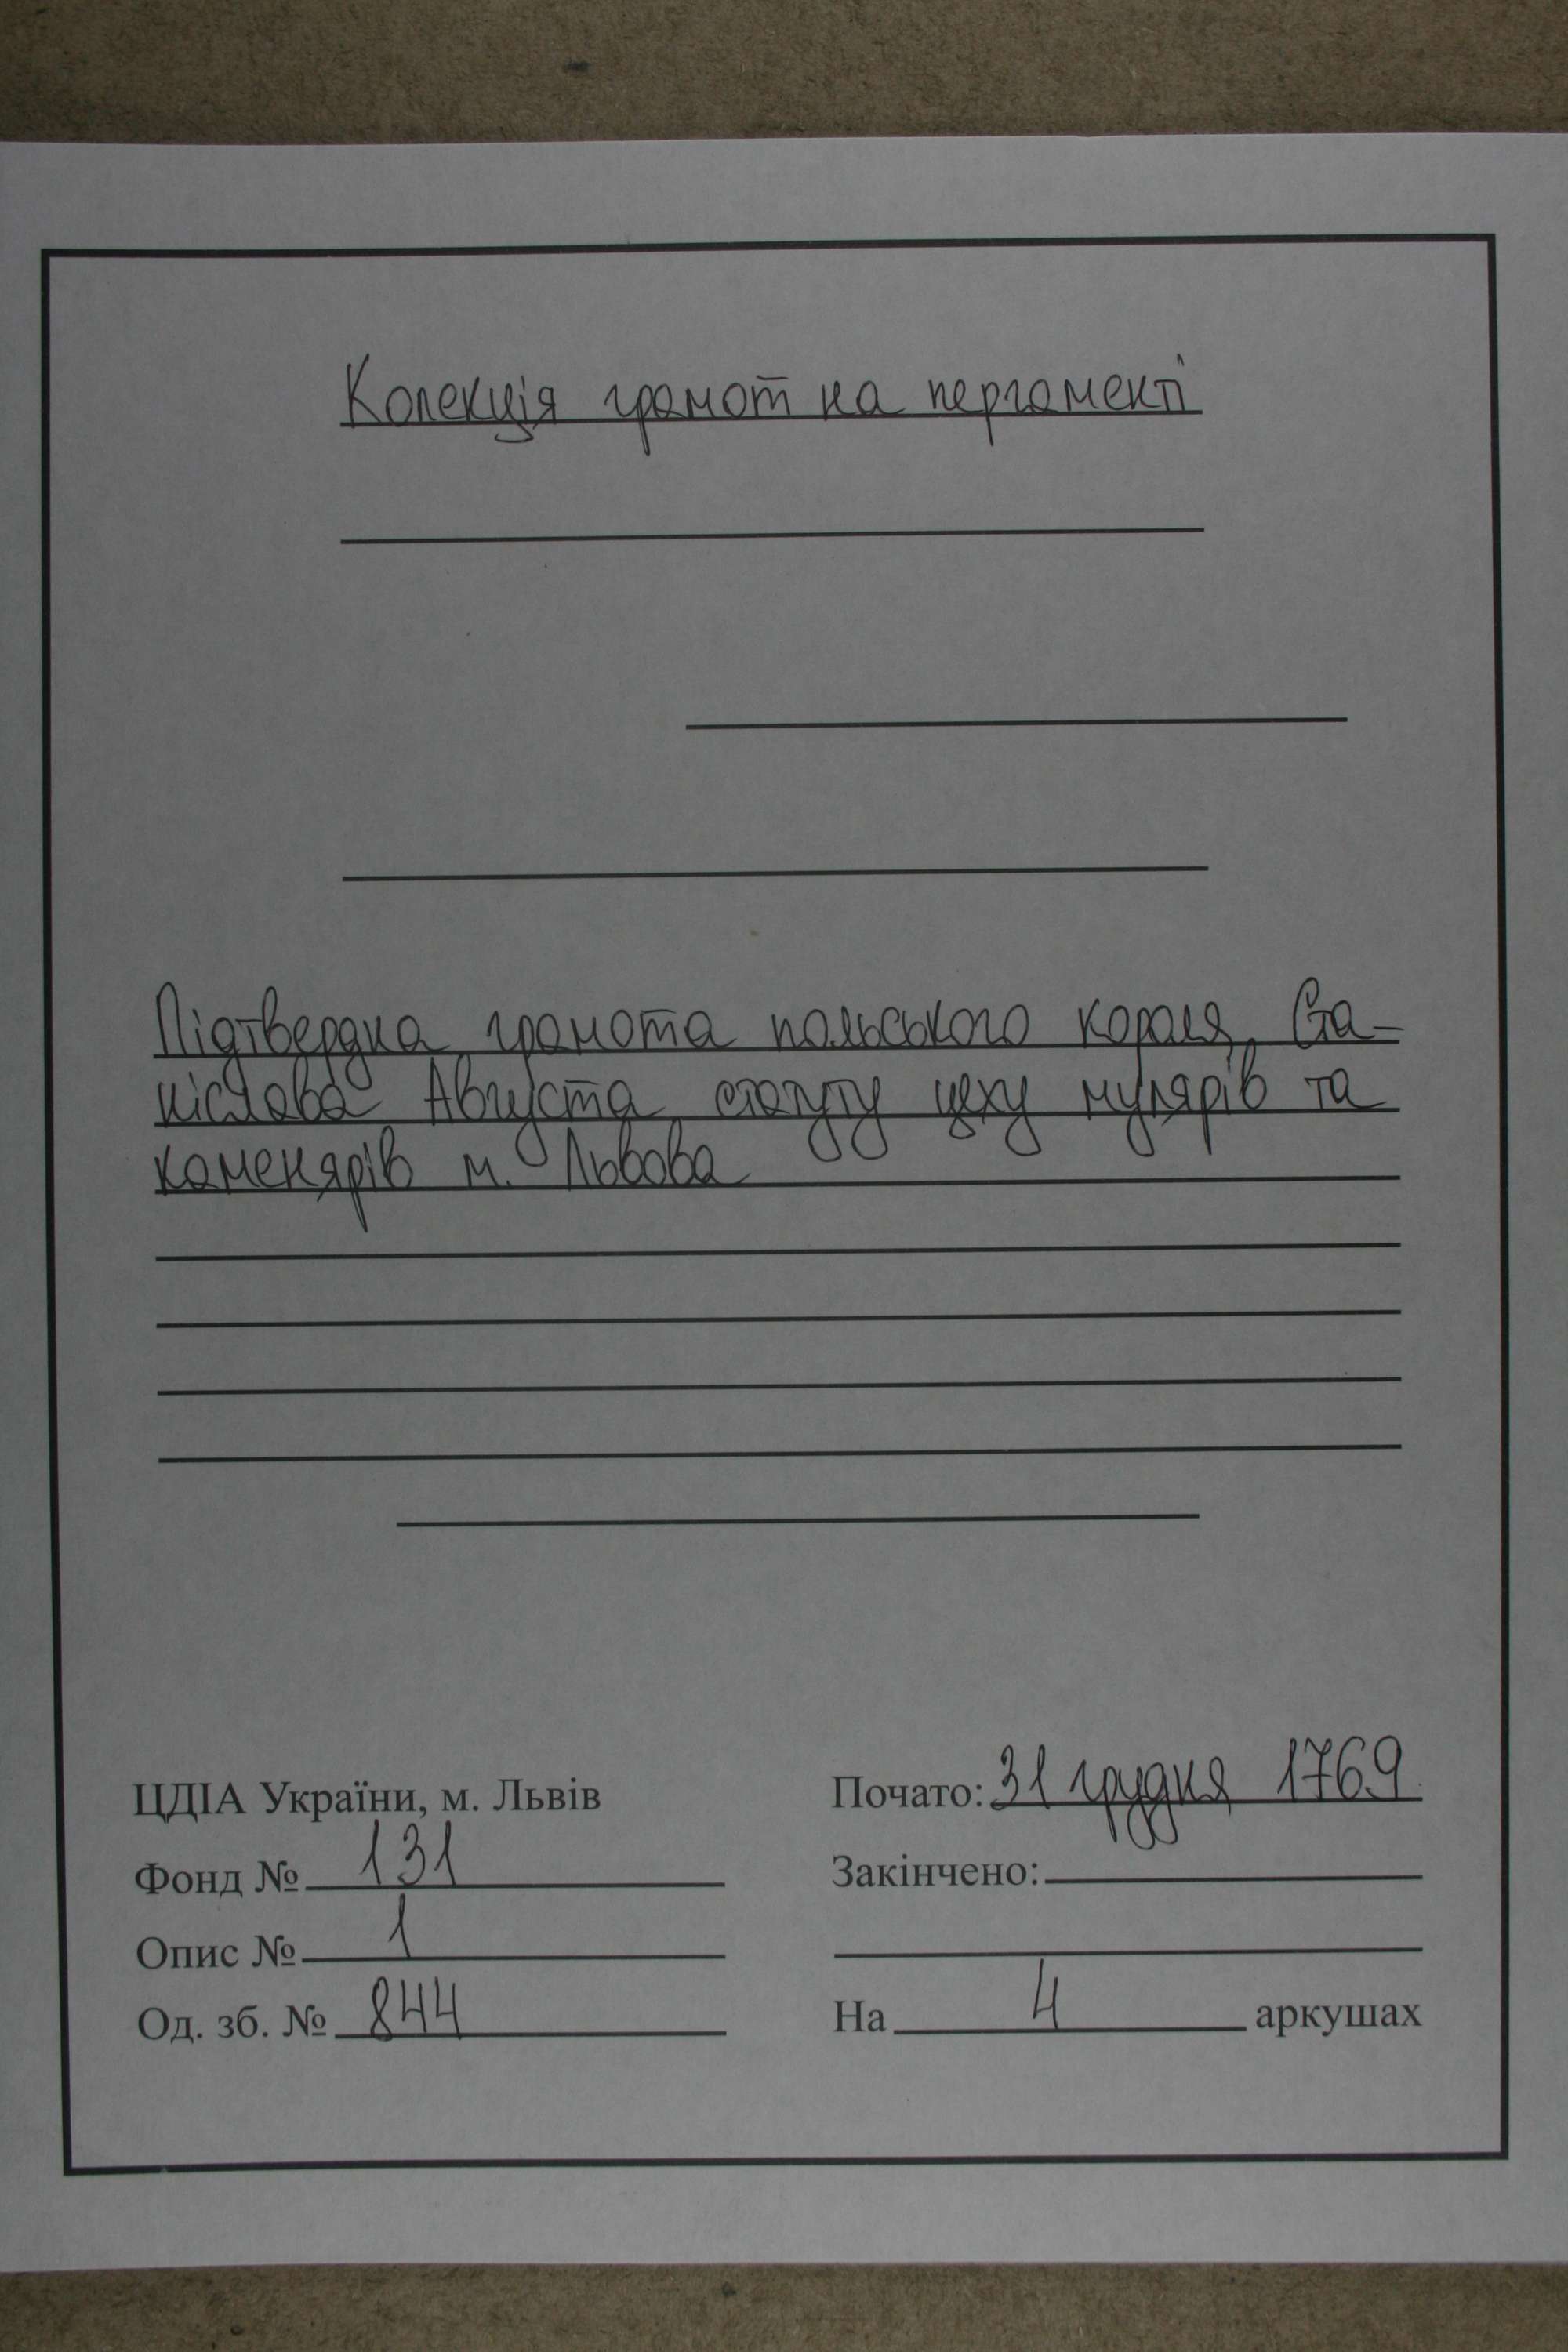 Колекція грамот на пергаменті
Підтвердна грамота польського короля Ста-
ніслава Августа статуту цеху мулярів та
каменярів м. Львова
ЦДІА України, м. Львів
Фонд № 131
Опис № 1
Од. зб. № 844
Почато: 31 грудня 1769
Закінчено:
На 4 аркушах